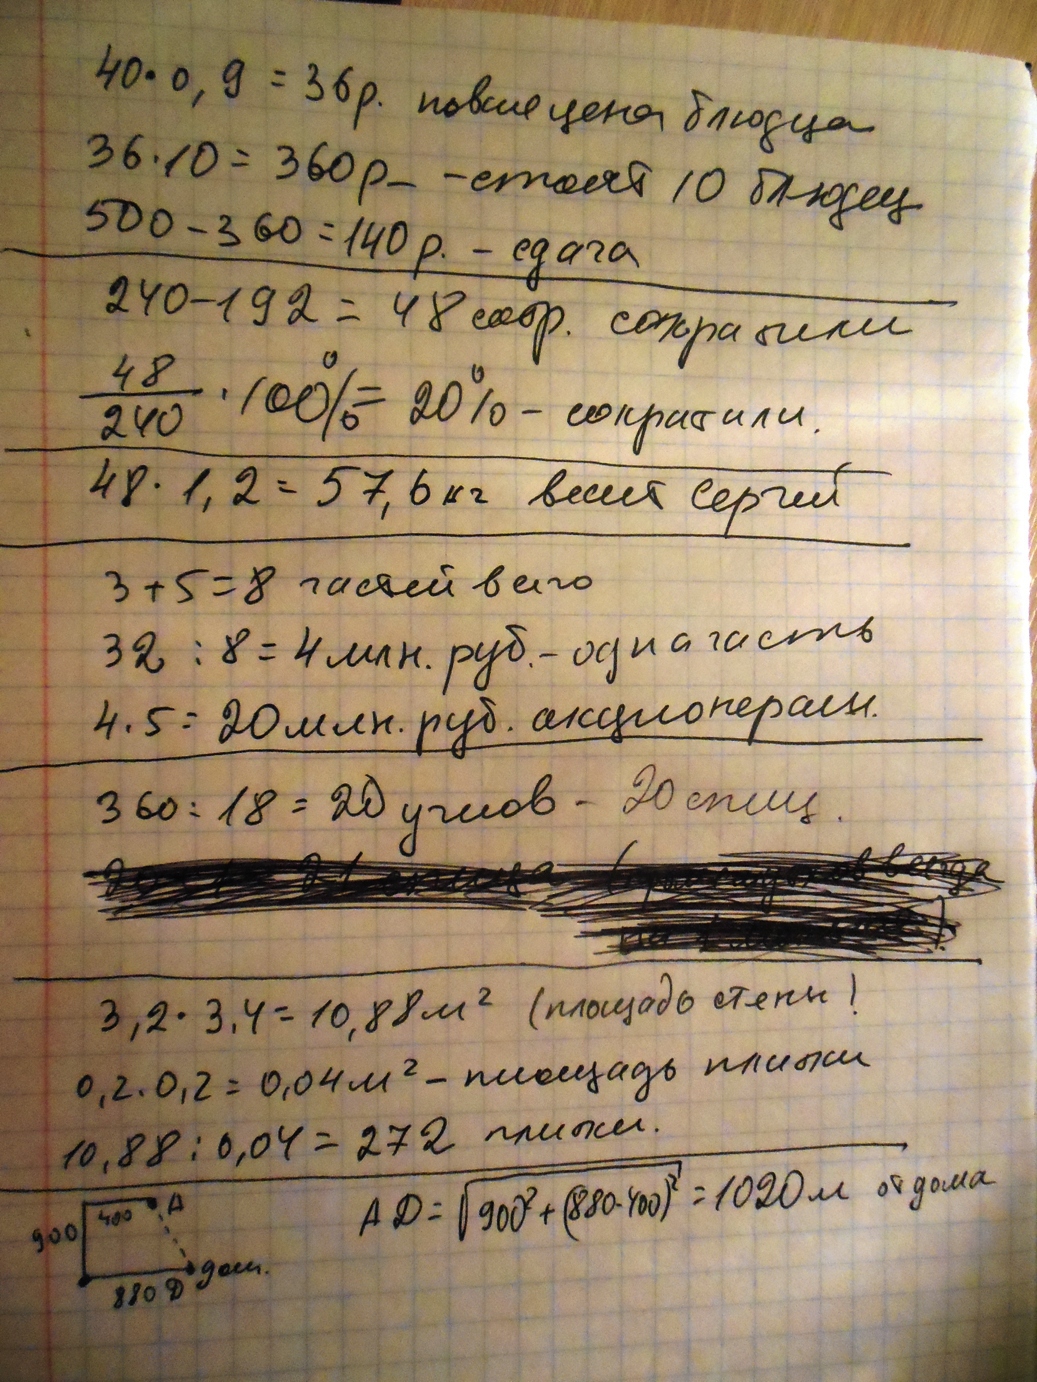 40·0,9=36р. новая цена блюдца
36·10=360р - стоят 10 блюдец
500-360=140р. - сдача
240-192=48 сотр. сократили
48/240 · 100%= 20% - сократили.
48·1,2=57,6кг весит Сергей
3+5=8 частей всего
32:8=4млн.руб.-одна часть
4·5=20млн.руб. акционерам.
360:18=20 углов - 20 спиц.
3,2·3,4=10,88м² (площадь стены)
0,2·0,2=0,04м²-площадь плитки
10,88:0,04=272 плитки.
900 400 А
880 D дом.
AD=√900²+(880-400)²=1020м от дома